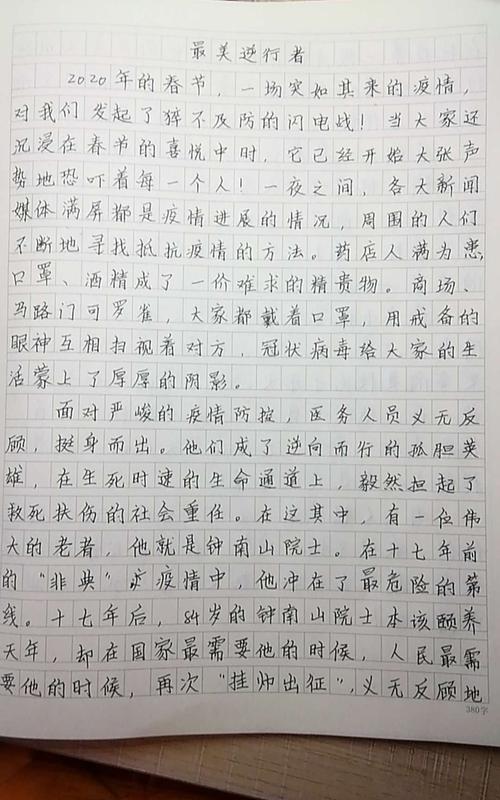 最美逆行者
2020年的春节，一场突如其来的疫情，
对我们发起了猝不及防的闪电战！当大家还
沉浸在春节的喜悦中时，它已经开始大张声
势地恐吓着每一个人！一夜之间，各大新闻
媒体满屏都是疫情进展的情况，周围的人们
不断地寻找抵抗疫情的方法。药店人满为患
口罩、酒精成了一价难求的精贵物。商场、
马路门可罗雀，大家都戴着口罩，用戒备的
眼神互相扫视着对方，冠状病毒给大家的生
活蒙上了厚厚的阴影。
面对严峻的疫情防控，医务人员义无反
顾，挺身而出。他们成了逆向而行的孤胆英
雄，在生死时速的生命通道上，毅然担起了
救死扶伤的社会重任。在这其中，有一位伟
大的老者，他就是钟南山院士。在十七年前
的“非典”疫情中，他冲在了最危险的第
线。十七年后，84岁的钟南山院士本该颐养
天年，却在国家最需要他的时候，人民最需
要他的时候，再次“挂帅出征”，义无反顾地
380字